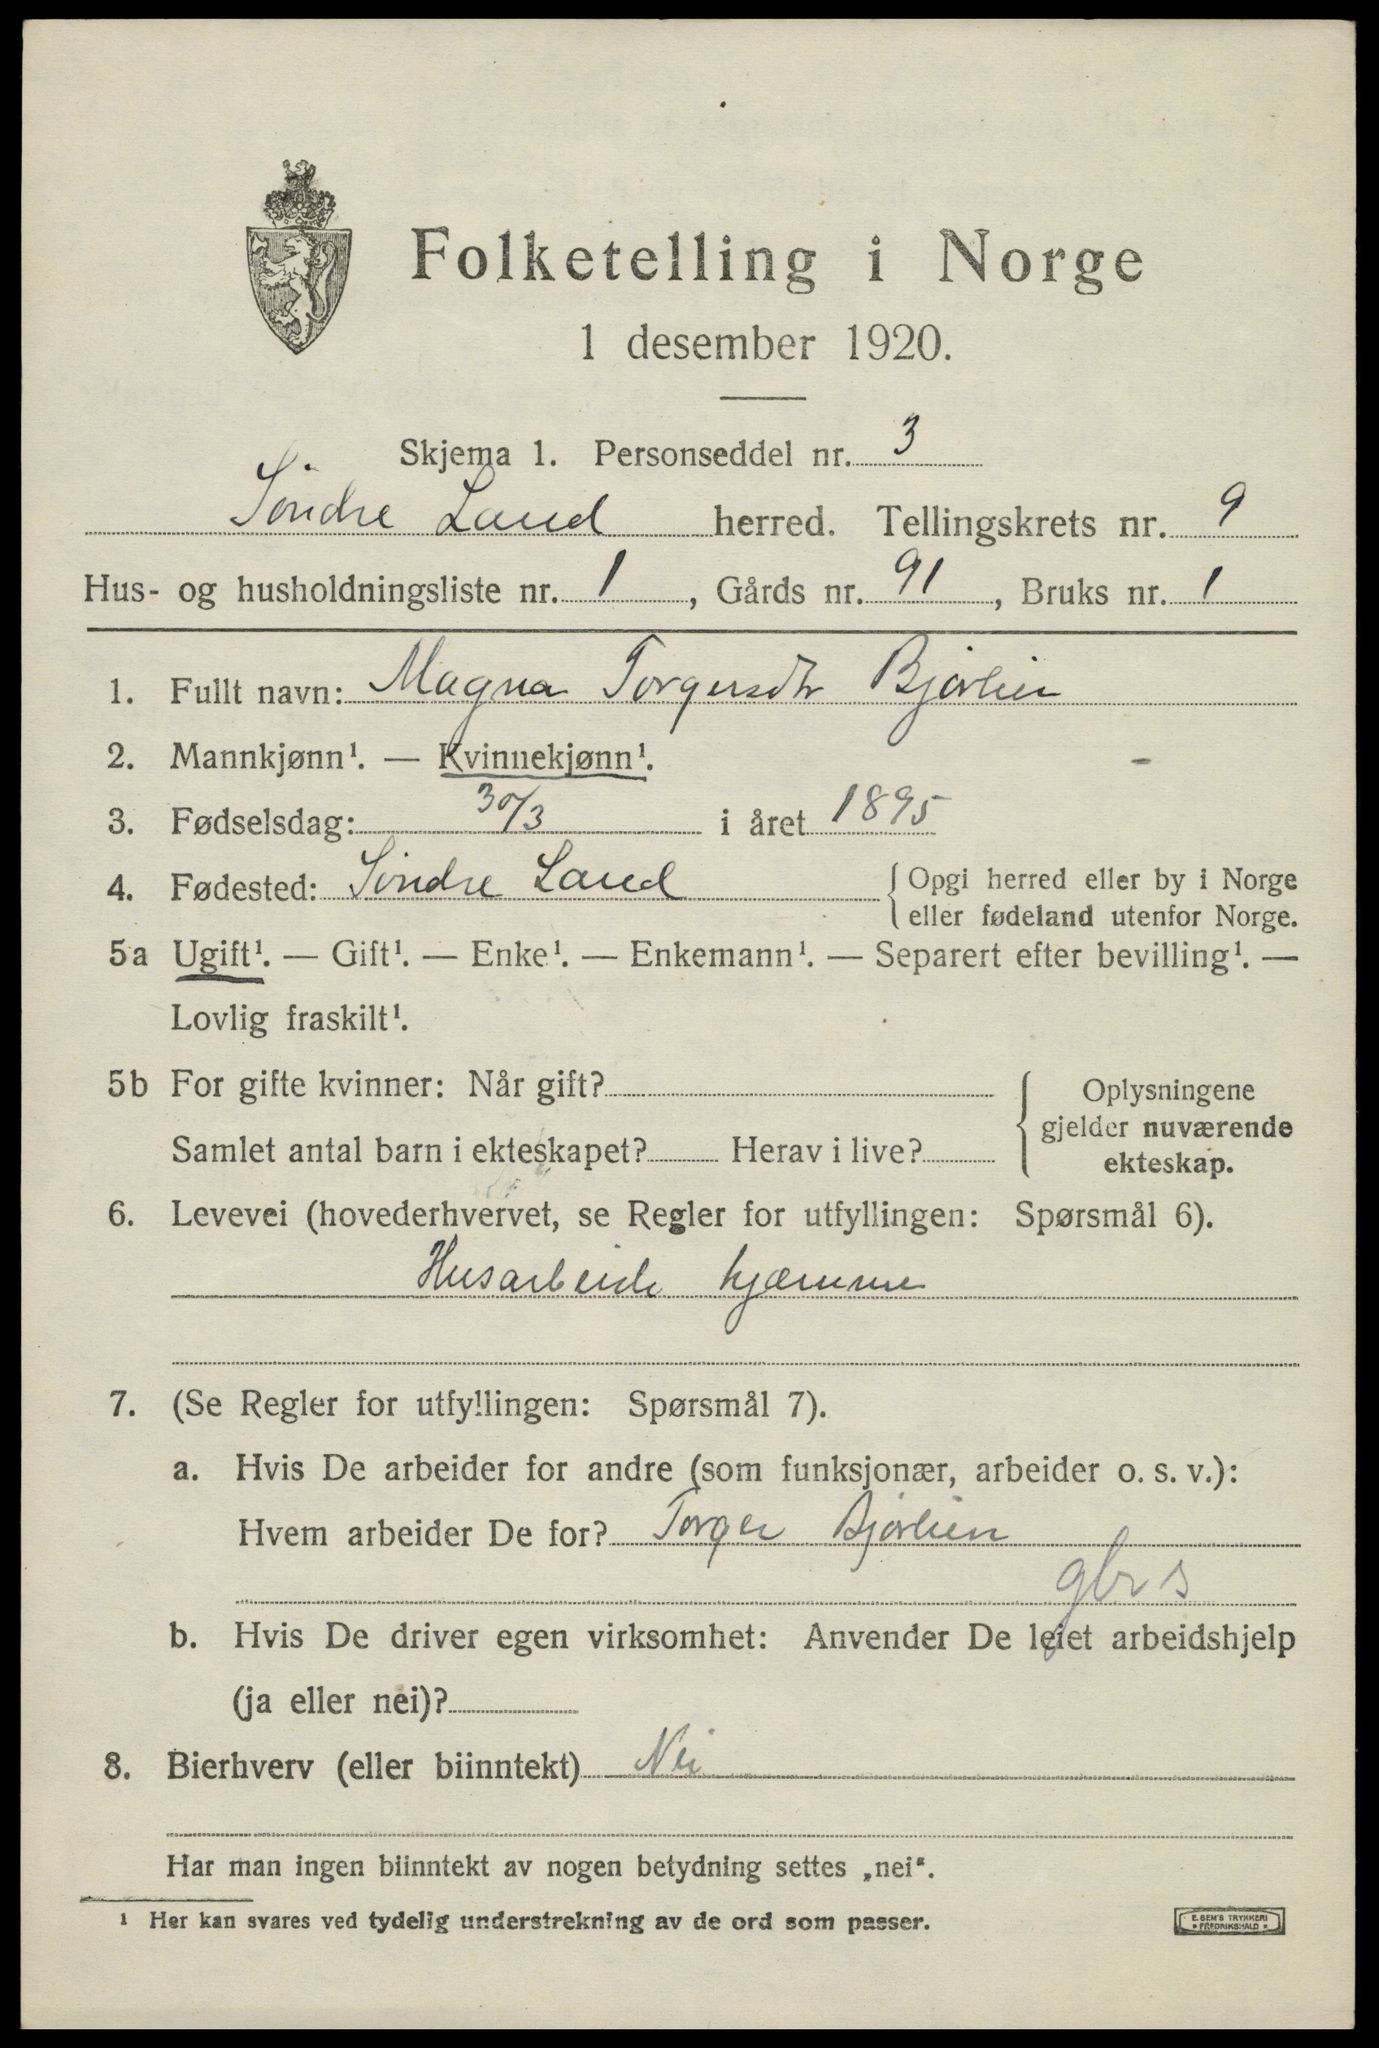 Folketelling i Norge
1 desember 1920.
Skjema 1. Personseddel nr. 3
Søndre Land herred. Tellingskrets nr. 9
Hus- og husholdningsliste nr. 1, Gårds nr. 91, Bruks nr. 1
1. Fullt navn: Magna Torgersdtr Bjørlien
2. Mannkjønn¹. — Kvinnekjønn¹.
3. Fødselsdag: 30/3 i året 1895
4. Fødested: Søndre Land {Opgi herred eller by i Norge
eller fødeland utenfor Norge.
5a Ugift¹. — Gift¹. — Enke¹. — Enkemann¹. — Separert efter bevilling¹. —
Lovlig fraskilt¹.
5b For gifte kvinner: Når gift?
Samlet antal barn i ekteskapet? Herav i live?
{Oplysningene
gjelder nuværende
ekteskap.
6. Levevei (hovederhvervet, se Regler for utfyllingen: Spørsmål 6).
Husarbeide hjæmme
7. (Se Regler for utfyllingen: Spørsmål 7).
a. Hvis De arbeider for andre (som funksjonær, arbeider o. s. v.):
Hvem arbeider De for? Torger Bjørlien
gbr s
b. Hvis De driver egen virksomhet: Anvender De leiet arbeidshjelp
(ja eller nei)?
8. Bierhverv (eller biinntekt) Nei
Har man ingen biinntekt av nogen betydning settes „nei“.
¹ Her kan svares ved tydelig understrekning av de ord som passer.
E. SEM'S TRYKKERI
• FREDRIKSHALD •